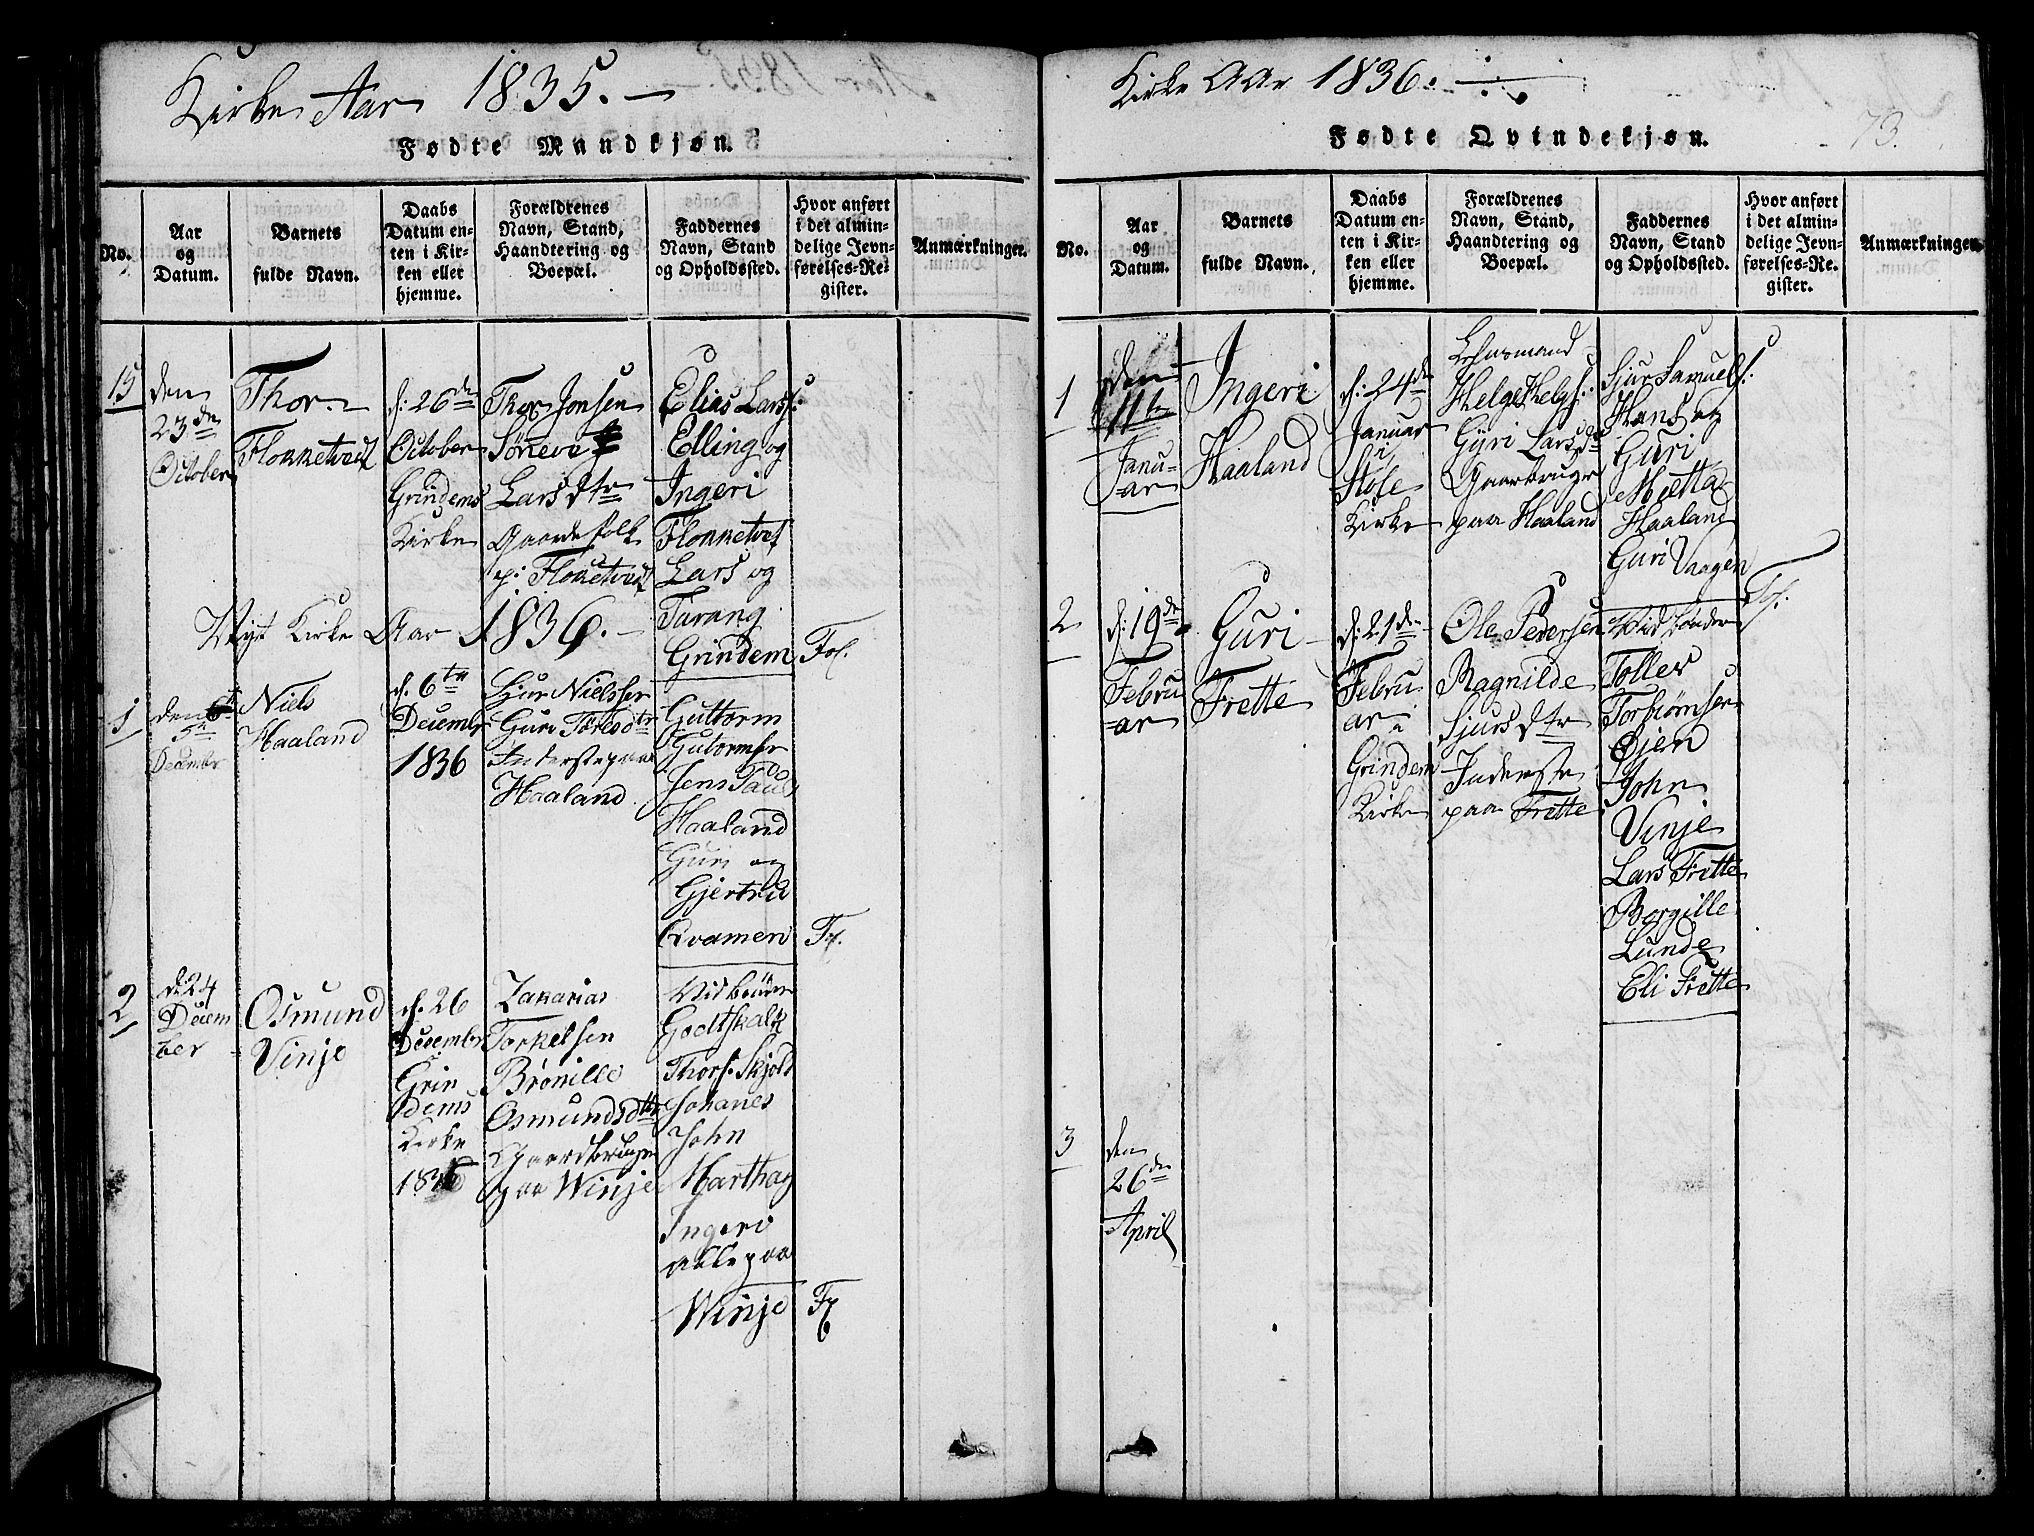 Kirke Aar 1835.
Fødte Mandkjøn.
No.
Aar
og
Datum.
Barnets
fulde Navn.
Daabs
Datum en-
ten i Kir-
ken eller
hjemme.
Forældrenes
Navn, Stand,
Haandtering og
Boepæl.
Faddernes
Navn, Stand
og Opholdssted.
Hvor anført
i det almin-
delige Jevn-
førelses-Re-
gister.
Anmærkninger.
15
den
23de
October
Thor
Flokketvedt
d: 26de
October
Grindems
Kirke
Thor Jonsen
SØneve
Larsdtr
Gaardefolk
p: Floketvedt
Elias Lars:
Elling og
Ingeri
Flokketvet
Lars og
Tarang
Grindem
Fol.
Nyt Kirke Aar 1836.
1
den
5te
Decembr
Niels
Haaland
d. 6te
Decembr
1836
Sjur Nielssen
Guri Toresdtr
Inderste paa
Haaland
Guttorm
Gutormsen
Jens Pauls
Haaland
Guri og
Gjertrud
Qvamen
Fol.
2
d: 24
Decem
ber
Osmund
Vinje
d. 26
Decembr
Grin
dems
Kirke
Zakarias
Torkelsen
Brønille
Osmundsdtr
Gaardbruger
paa Winje
Godtskalk
Thors: Skjold
Johanes
John
Martha og
Ingeri
alle paa
Winje
Kirke Aar 1836.
Fødte Qvindekjøn.
73.
No.
Aar
og
Datum.
Barnets
fulde Navn.
Daabs
Datum en-
ten i Kir-
ken eller
hjemme.
Forældrenes
Navn, Stand,
Haandtering og
Boepæl.
Faddernes
Navn, Stand
og Opholdssted.
Hvor anført
i det almin-
delige Jevn-
førelses-Re-
gister.
Anmærkninger.
1
den
11te
Janu-
ar
Ingeri
Haaland
d: 24de
Januar
i
Stole
Kirke
Lehnsmand
Helge Helgs:
Gyri Larsdtr
Gaardbruger
paa Haaland
Sjur Samuels:
Hans og
Guri
Metta
Haaland
Guri Vaagen
Fol.
2
d: 19de
Febru
ar
Guri
Frette
d: 21de
Febru
ar i
Grindem
Kirke
Ole Pedersen
Magnilde
Sjursdtr
Inderste
paa Frette
Toller
Torbiørnsen
Øjen
John
Vinje
Lars Frette
Borgille
Lunde
Eli Frette
3
den
26de
April